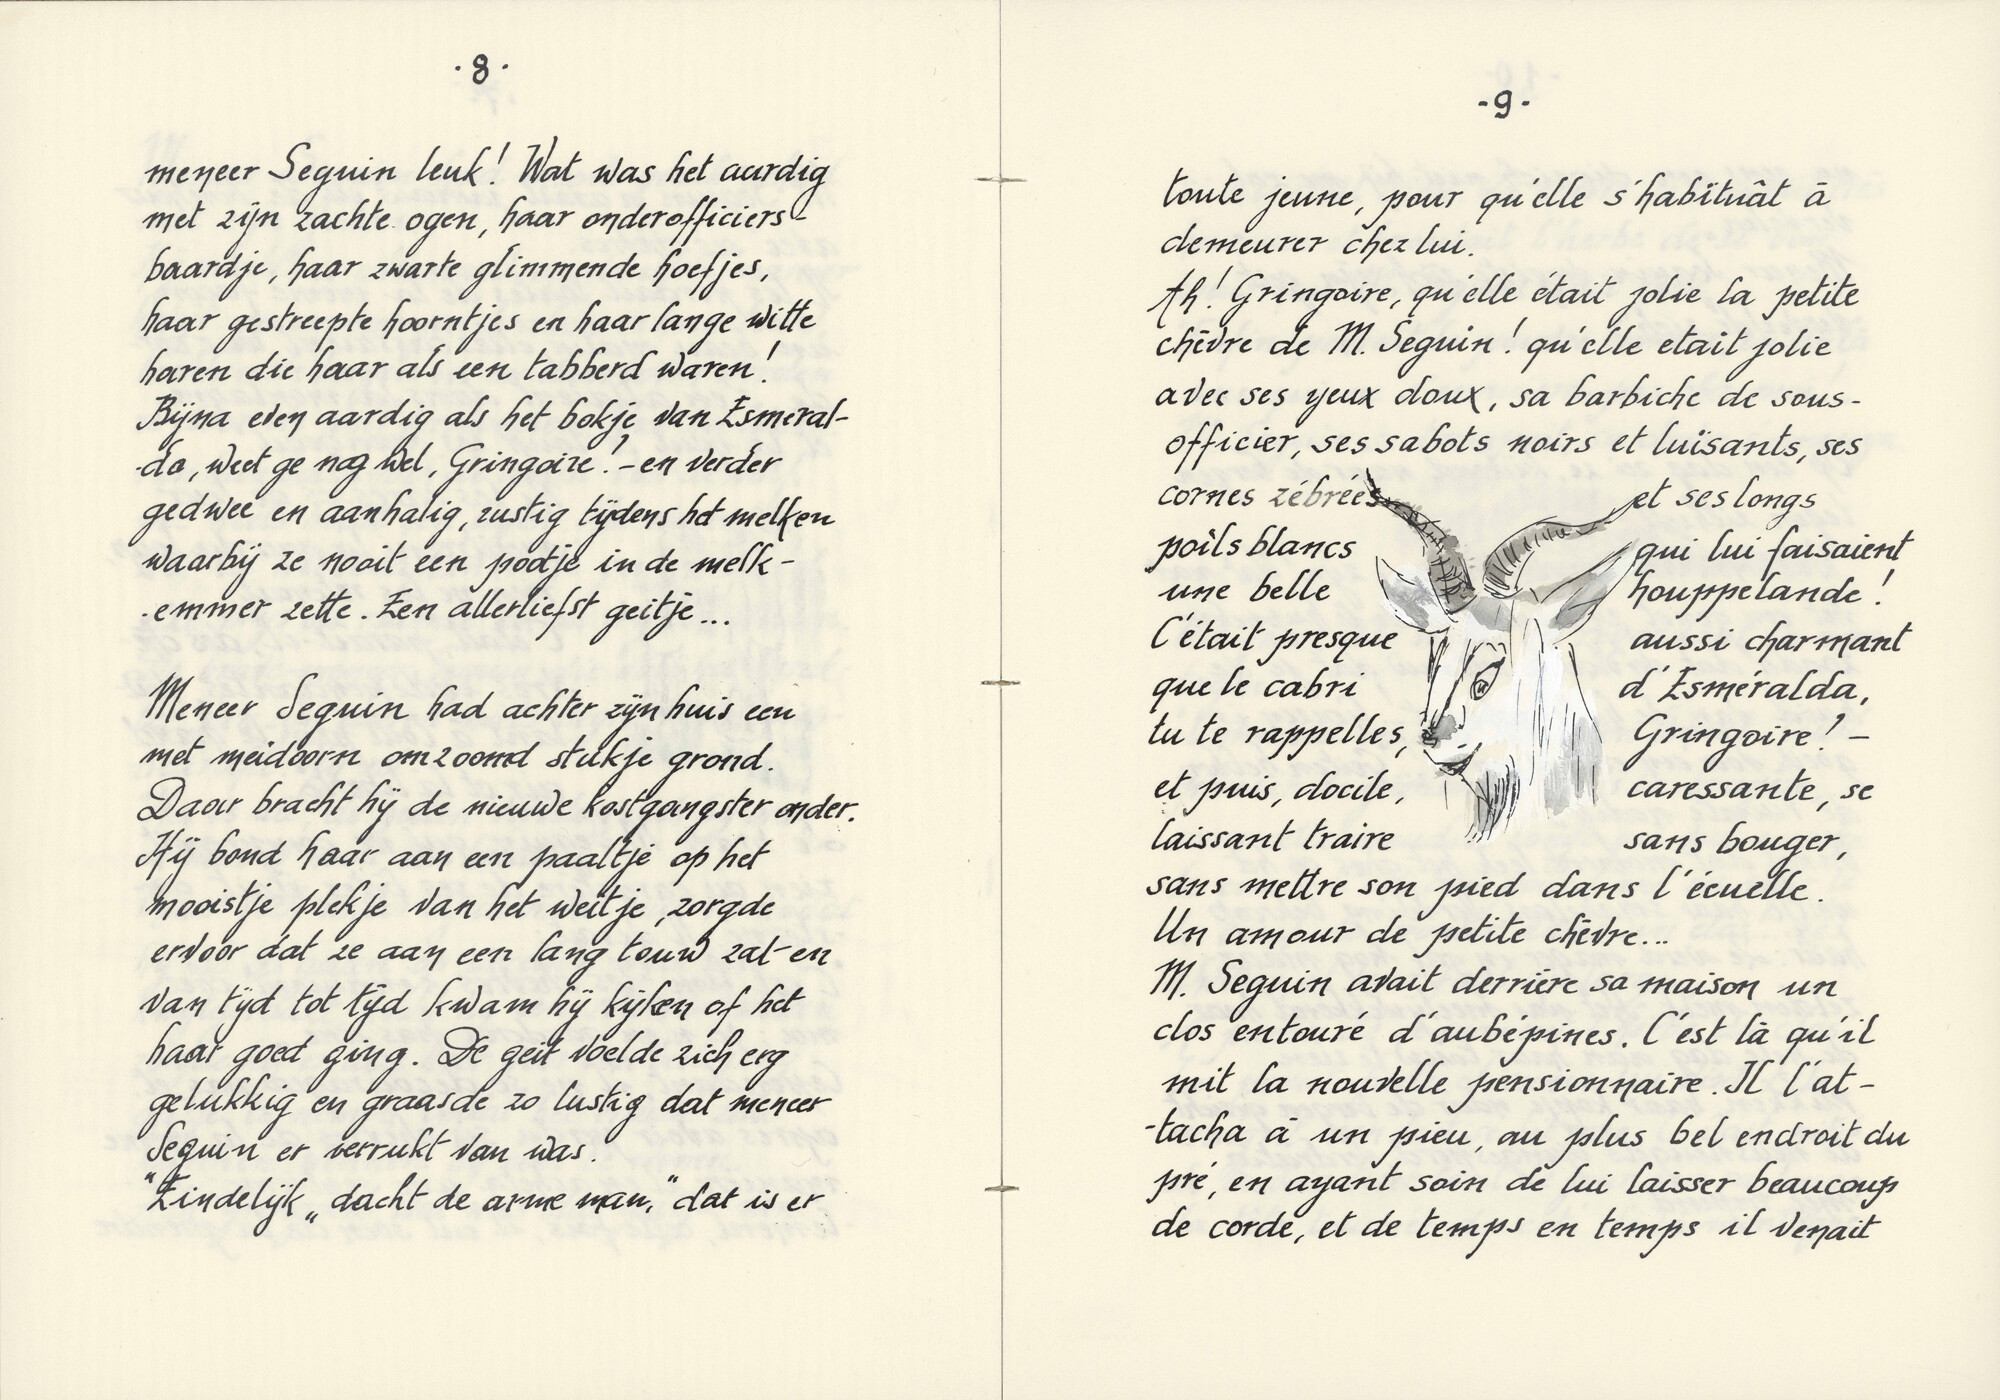 · 8 ·
meneer Seguin leuk! Wat was het aardig
met zijn zachte ogen, haar onderofficiers-
baardje, haar zwarte glimmende hoefjes,
haar gestreepte hoorntjes en haar lange witte
haren die haar als een tabberd waren!
Bijna even aardig als het bokje van Esmeral-
-da, weet ge nog wel, Gringoire? - en verder
gedwee en aanhalig, rustig tijdens het melken
waarbij ze nooit een pootje in de melk-
-emmer zette. Een allerliefst geitje...
Meneer Seguin had achter zijn huis een
met meidoorn omzoomd stukje grond.
Daar bracht hij de nieuwe kostgangster onder.
Hij bond haar aan een paaltje op het
mooistje plekje van het weitje, zorgde
ervoor dat ze aan een lang touw zat en
van tijd tot tijd kwam hij kijken of het
haar goed ging. De geit voelde zich erg
gelukkig en graasde zo lustig dat meneer
Seguin er verrukt van was.
"Eindelijk„ dacht de arme man, "dat is er
- 9 -
toute jeune, pour qu'elle s'habituât à
demeurer chez lui.
Ah! Gringoire, qu'elle était jolie la petite
chèvre de M. Seguin! qu'elle etait jolie
avec ses yeux doux, sa barbiche de sous-
officier, ses sabots noirs et luisants, ses
cornes zébrées et ses longs
poils blancs qui lui faisaient
une belle houppelande!
C'était presque aussi charmant
que le cabri d'Esméralda,
tu te rappelles, Gringoire? -
et puis, docile, caressante, se
laissant traire sans bouger,
sans mettre son pied dans l'écuelle.
Un amour de petite chèvre...
M. Seguin avait derrière sa maison un
clos entouré d'aubépines. C'est là qu'il
mit la nouvelle pensionnaire. Il l'at-
-tacha à un pieu, au plus bel endroit du
pré, en ayant soin de lui laisser beaucoup
de corde, et de temps en temps il venait